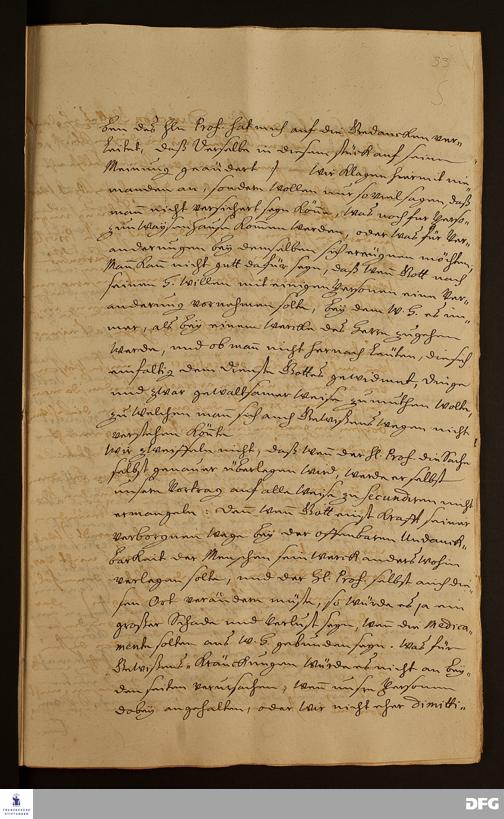 33
ben des Hln Prof. hat mich auf die Gedancken ver-
leitet, daß Derselbe in diesem stück auf seine
Meinung geändert) Wir klagen hiermit nie-
manden an, sondern wollen nur so viel sagen, daß
mañ nicht versichert seyn köñe, was noch für Perso-
zum Waysenhause kommen werden, oder was für Ver-
änderungen bey demselben sich ereügnen möchten,
Mañ kañ nicht gutt dafür seyn, daß weñ Gott nach
seinem H. Willen mit einigen Personen eine Ver-
änderung vornehmen solte, bey dem W. H. es im-
mer, als bey einem Wercke des Herrn zugehen
werde, und ob mañ nicht hernach Leuten, die sich
einfältig dem Dienste Gottes gewidmet, Dinge
und zwar gewaltsamer weise zumuthen wolte,
zu welchen mañ sich auch Gewißens wegen nicht
verstehen könte.
Wir zweiffeln nicht, daß weñ der Hl. Prof. die Sache
selbst genauer überlegen wird, werde er selbst
unsern Vortrag auf alle Weise zu secundiren nicht
ermangeln: Deñ weñ Gott einst Krafft seiner
verborgnen Wege bey der offenbaren Undanck-
barkeit der Menschen sein Werck anders wohin
verlegen solte, und der Hl. Prof. selbst auch die-
sen Ort verändern müste, so würde es ja ein
großer Schade und Verlust seyn, weñ die Medica-
mente solten ans W. H. gebunden seyn. Was für
Gewißens-Kränckungen würde es nicht an bey-
den seiten verursachen, weñ unsre Personen
dabey angehalten, oder wir nicht eher dimitti-
FRANCKESCHE STIFTUNGEN
DFG